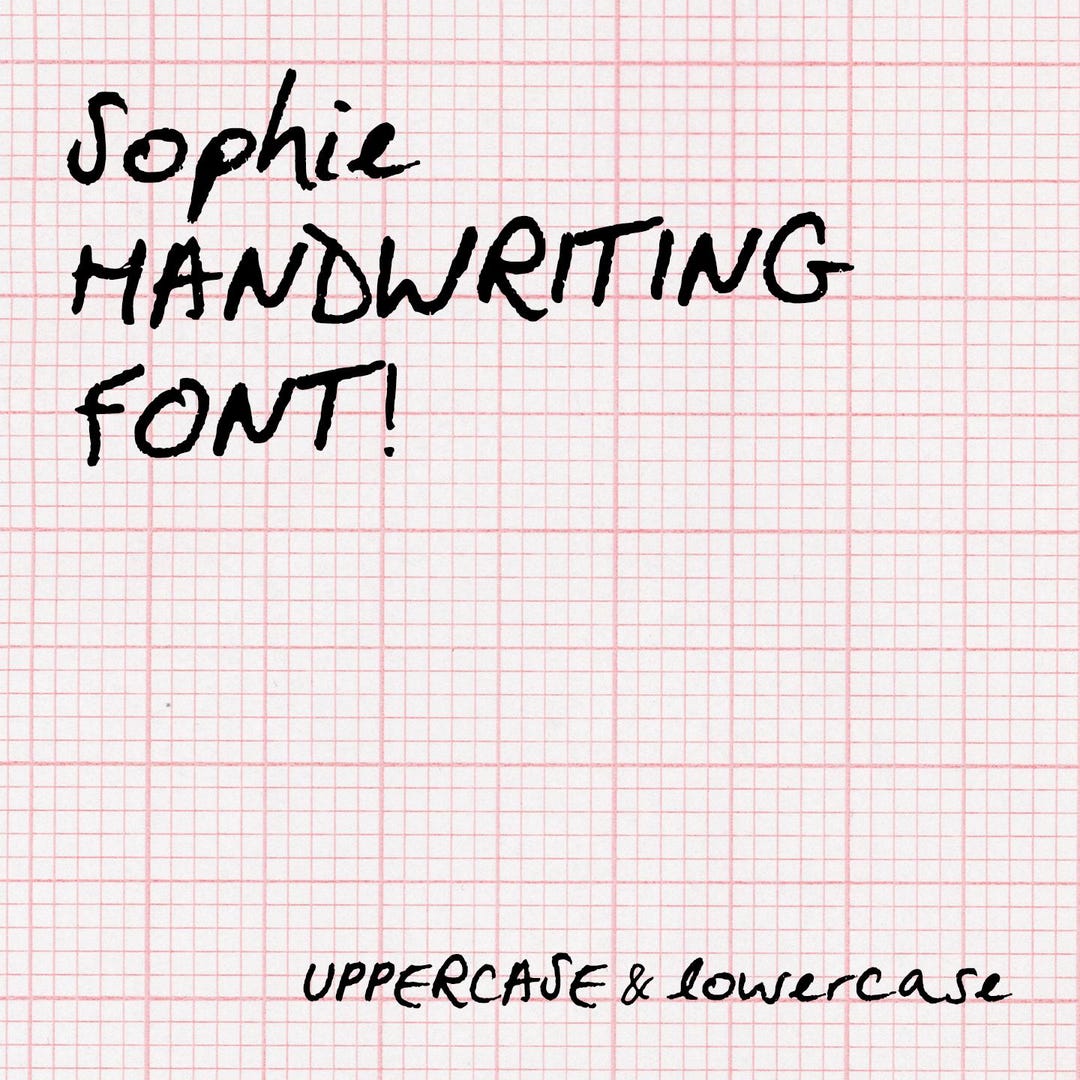 Sophie
HANDWRITING
FONT!
UPPERCASE & lowercase